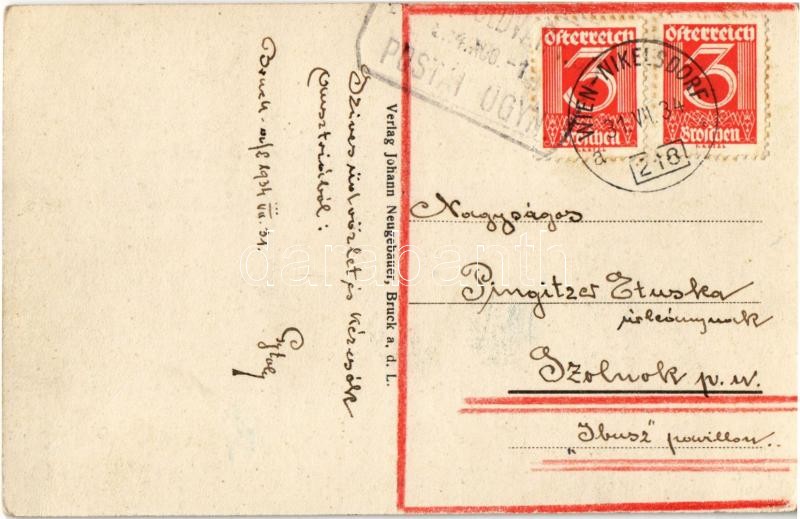 Bruck a/L 1934 VII. 31.
Szives üdvözlet és kézcsók
ausztriából:
Verlag Johann Neugebauer, Bruck a. d. L.
POSTAI ÜGYN
Österreich
3
Groschen
Österreich
3
Groschen
WIEN-NIKELSDORF
31.VII.34
a
218
Nagyságos
Pingitzer Etuska
úrleánynak
Szolnok p. u.
"Ibusz" pavillon.
darabanth